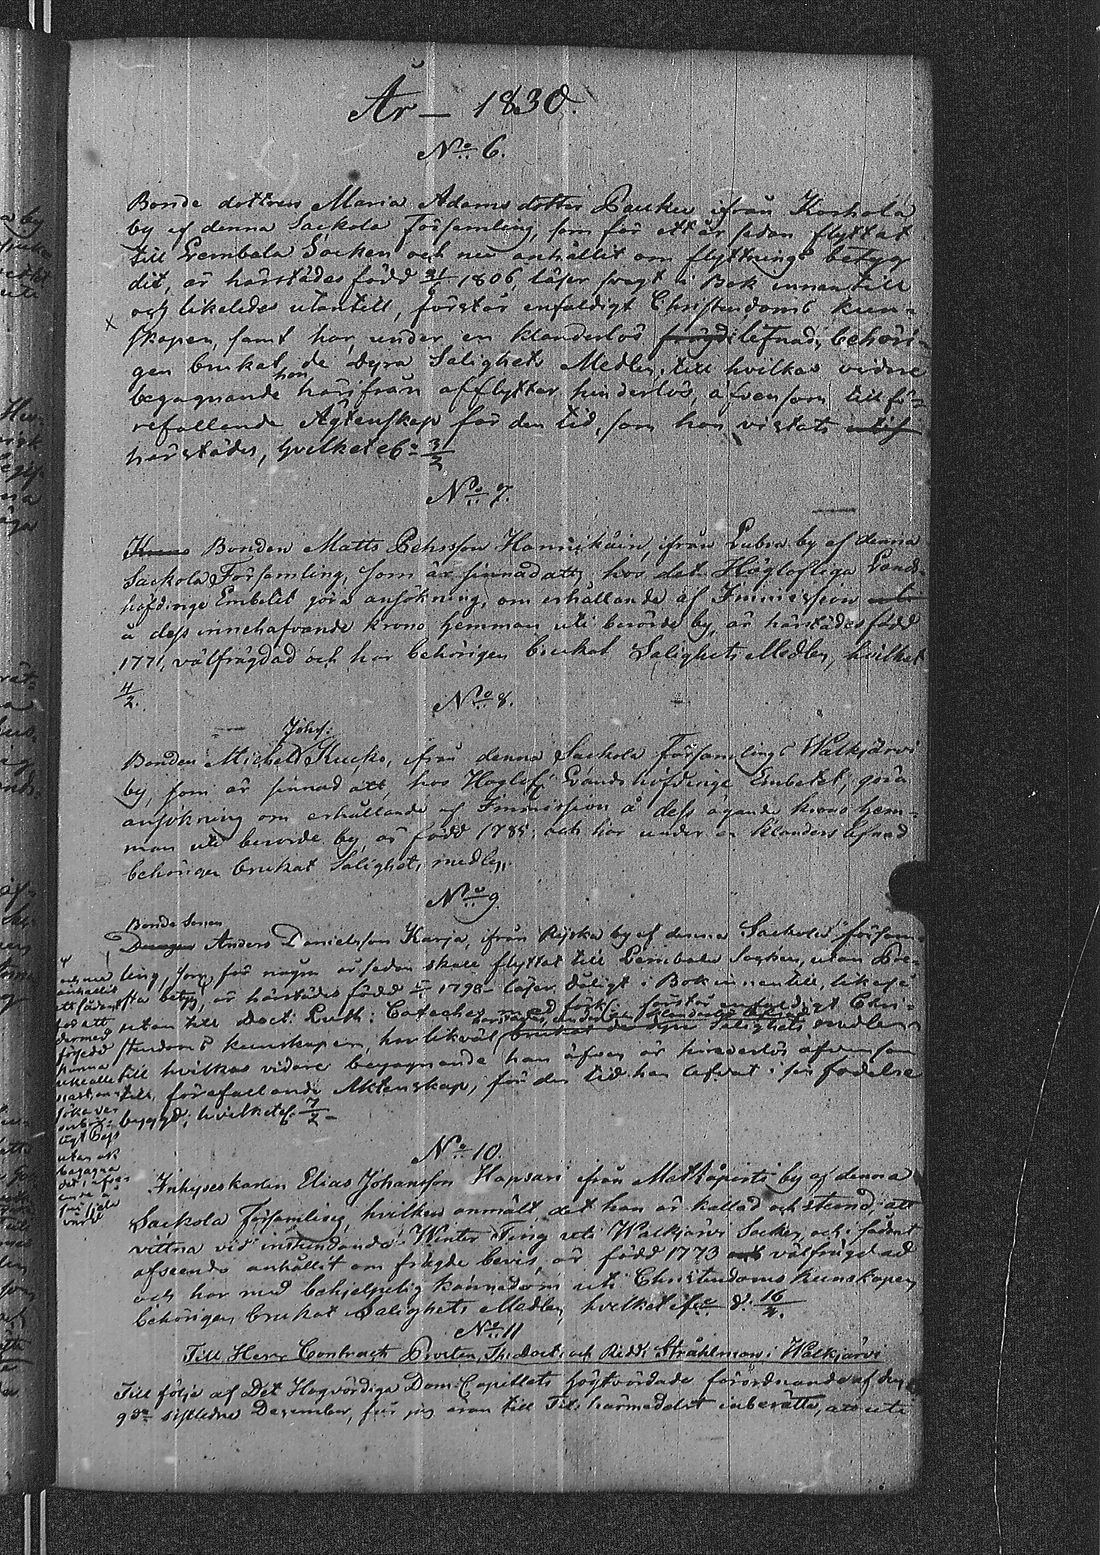 År – 1830.
No 6.
Bonde dottren Maria Adamsdotter Paukku ifrån Korhola
by af denna Sackola Församling, som för ett år sedan flyttat
till Lembala Socken och nu anhållit om flyttnings betyg
dit, är härstädes född 1806, läser svagt i Bok innantill
och likeledes utantill, förstår enfaldigt Christendoms kun-
skapen, samt har under en klanderlös lefnad, behöri-
gen brukat de dyra Salighets Medlen, till hvilkas vidare
begagnande hon härifrån afflyttar hinderlös, äfvensom till fö-
refallande Ägtenskap för den tid, som hon vistats
härstädes, hvilket 3/2
No 7.
Bonden Matts Pehrsson Hannikäin, ifrån Lubia by af denna
Sackola Församling, som är sinnad att, hos det Höglofliga Lands-
höfdinge Embetet göra ansökning, om erhållande af Immission
å dess innehafvande krono hemman uti berörde by, är härstädes född
1771, välfrägdad och har behörigen brukat Salighets Medlen, hvilket
4/2.
No 8.
Johs:
Bonden Michel Kucko, ifrån denna Sackola Församlings Walkjärvi
by, som är sinnad att, hos Höglofl Landshöfdinge Embetet, göra
ansökning om erhållande af Immission å dess ägande krono hem-
man uti berörde by, är född 1785, och har under en klanders lefnad
behörigen brukat Salighets medlen.
No 9.
Bonde Sonen
Anders Danielsson Karja, ifrån Rijska by af denna Sackola försam-
ling, som för några år sedan skall flyttat till Lembala Socken, utan Pre-
sta betyg, är härstädes född 1798, läser dåligt i Bok innantill, likaså
utan till Doct: Luth: Cateches med förkl: förstår enfaldigt Chri-
stendoms kunskapen, har likväl de dyra Salighets medlen
till hvilkas vidare begagnande han äfven är hinderlös äfvensom
till förefallande Äktenskap, för den tid han lefvat i sin födelse
bygd, hvilket 7/2
No 10.
Inhyseskarlen Elias Johansson Hapsan ifrån Matkåperti by af denna
Sackola Församling, hvilken anmält det han är kallad och stämd, att
vittna vid instundande Winter Ting uti Walkjärvi Socken, och i sådant
afseende anhållit om frägde bevis, är född 1773 välfrägdad
och har med behjelpelig kännedom uti Christendoms kunskapen,
behörigen brukat Salighets Medlen, hvilket d. 16/2.
No 11
Till Herr Contracts Prosten, Th: Doct: och Ridd: Stråhlman i Walkjärvi
Till följe af Det Högvördiga Dom Capitlets högtvördade förordnande af den
9de sistledne December, får jag äran till Tit: härmedelst inberätta, att uti